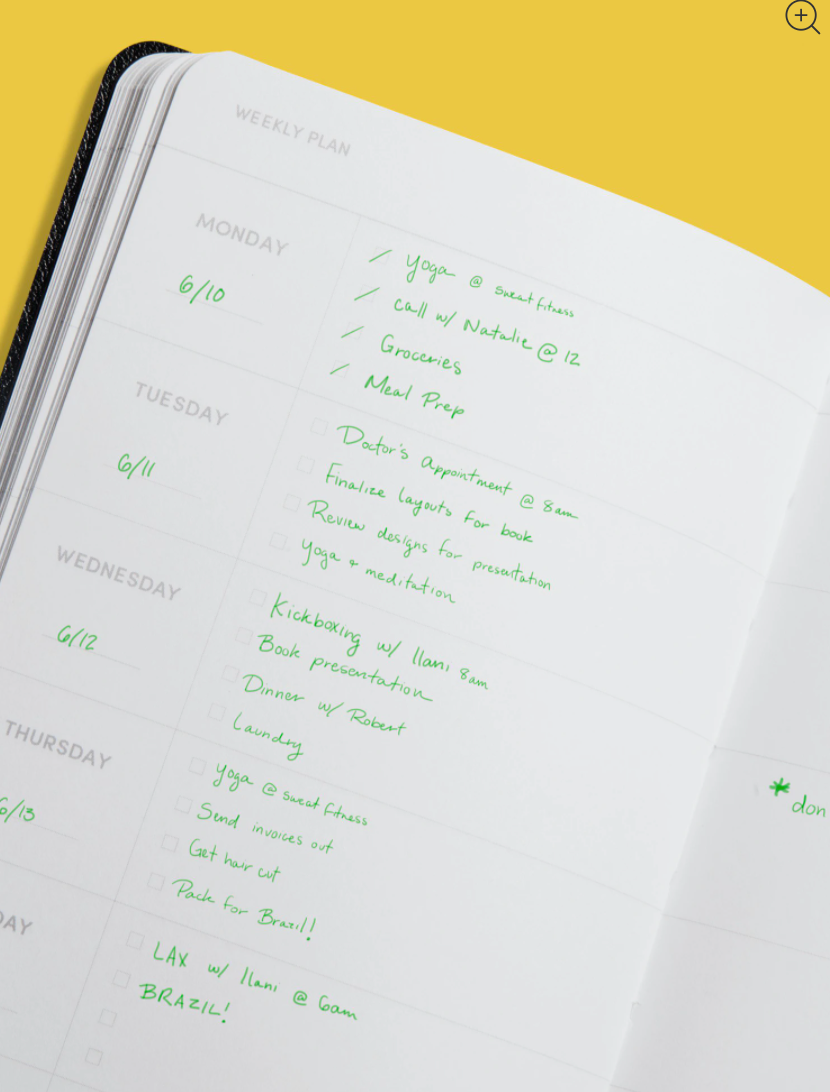 WEEKLY PLAN
MONDAY
6/10
Yoga @ sweat fitness
call w/ Natalie @ 12
Groceries
Meal Prep
TUESDAY
6/11
Doctor's Appointment @ 8am
Finalize layouts for book
Review designs for presentation
Yoga + meditation
WEDNESDAY
6/12
Kickboxing w/ Ilani 8am
Book presentation
Dinner w/ Robert
Laundry
THURSDAY
6/13
Yoga @ sweat fitness
Send invoices out
Get hair cut
Pack for Brazil!
DAY
LAX w/ Ilani @ 6am
BRAZIL!
* don